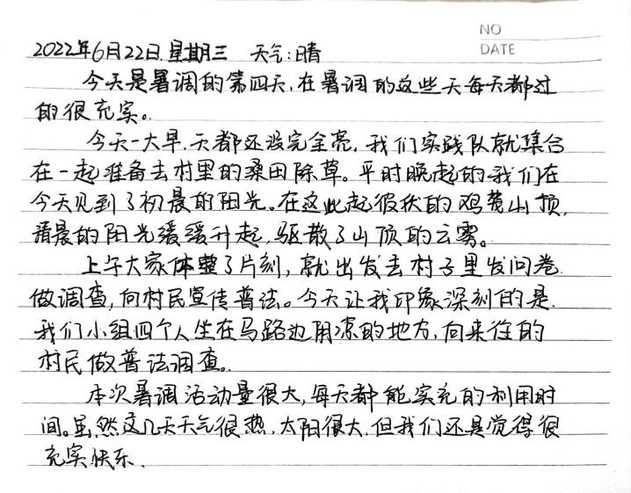 NO
DATE
2022年6月22日.星期三 天气:晴
今天是暑调的第四天,在暑调的这些天每天都过
的很充实。
今天一大早.天都还没完全亮,我们实践队就集合
在一起准备去村里的桑田除草。平时晚起的我们在
今天见到了初晨的阳光。在这此起彼伏的鸡黄山顶,
清晨的阳光缓缓升起,驱散了山顶的云雾。
上午大家体整了片刻,就出发去村子里发问卷
做调查,向村民宣传普法。今天让我印象深刻的是
我们小组四个人坐在马路边阴凉的地方,向来往的
村民做普法调查。
本次暑调活动量很大,每天都能实充的利用时
间。虽然这几天天气很热,太阳很大,但我们还是觉得很
充实快乐.